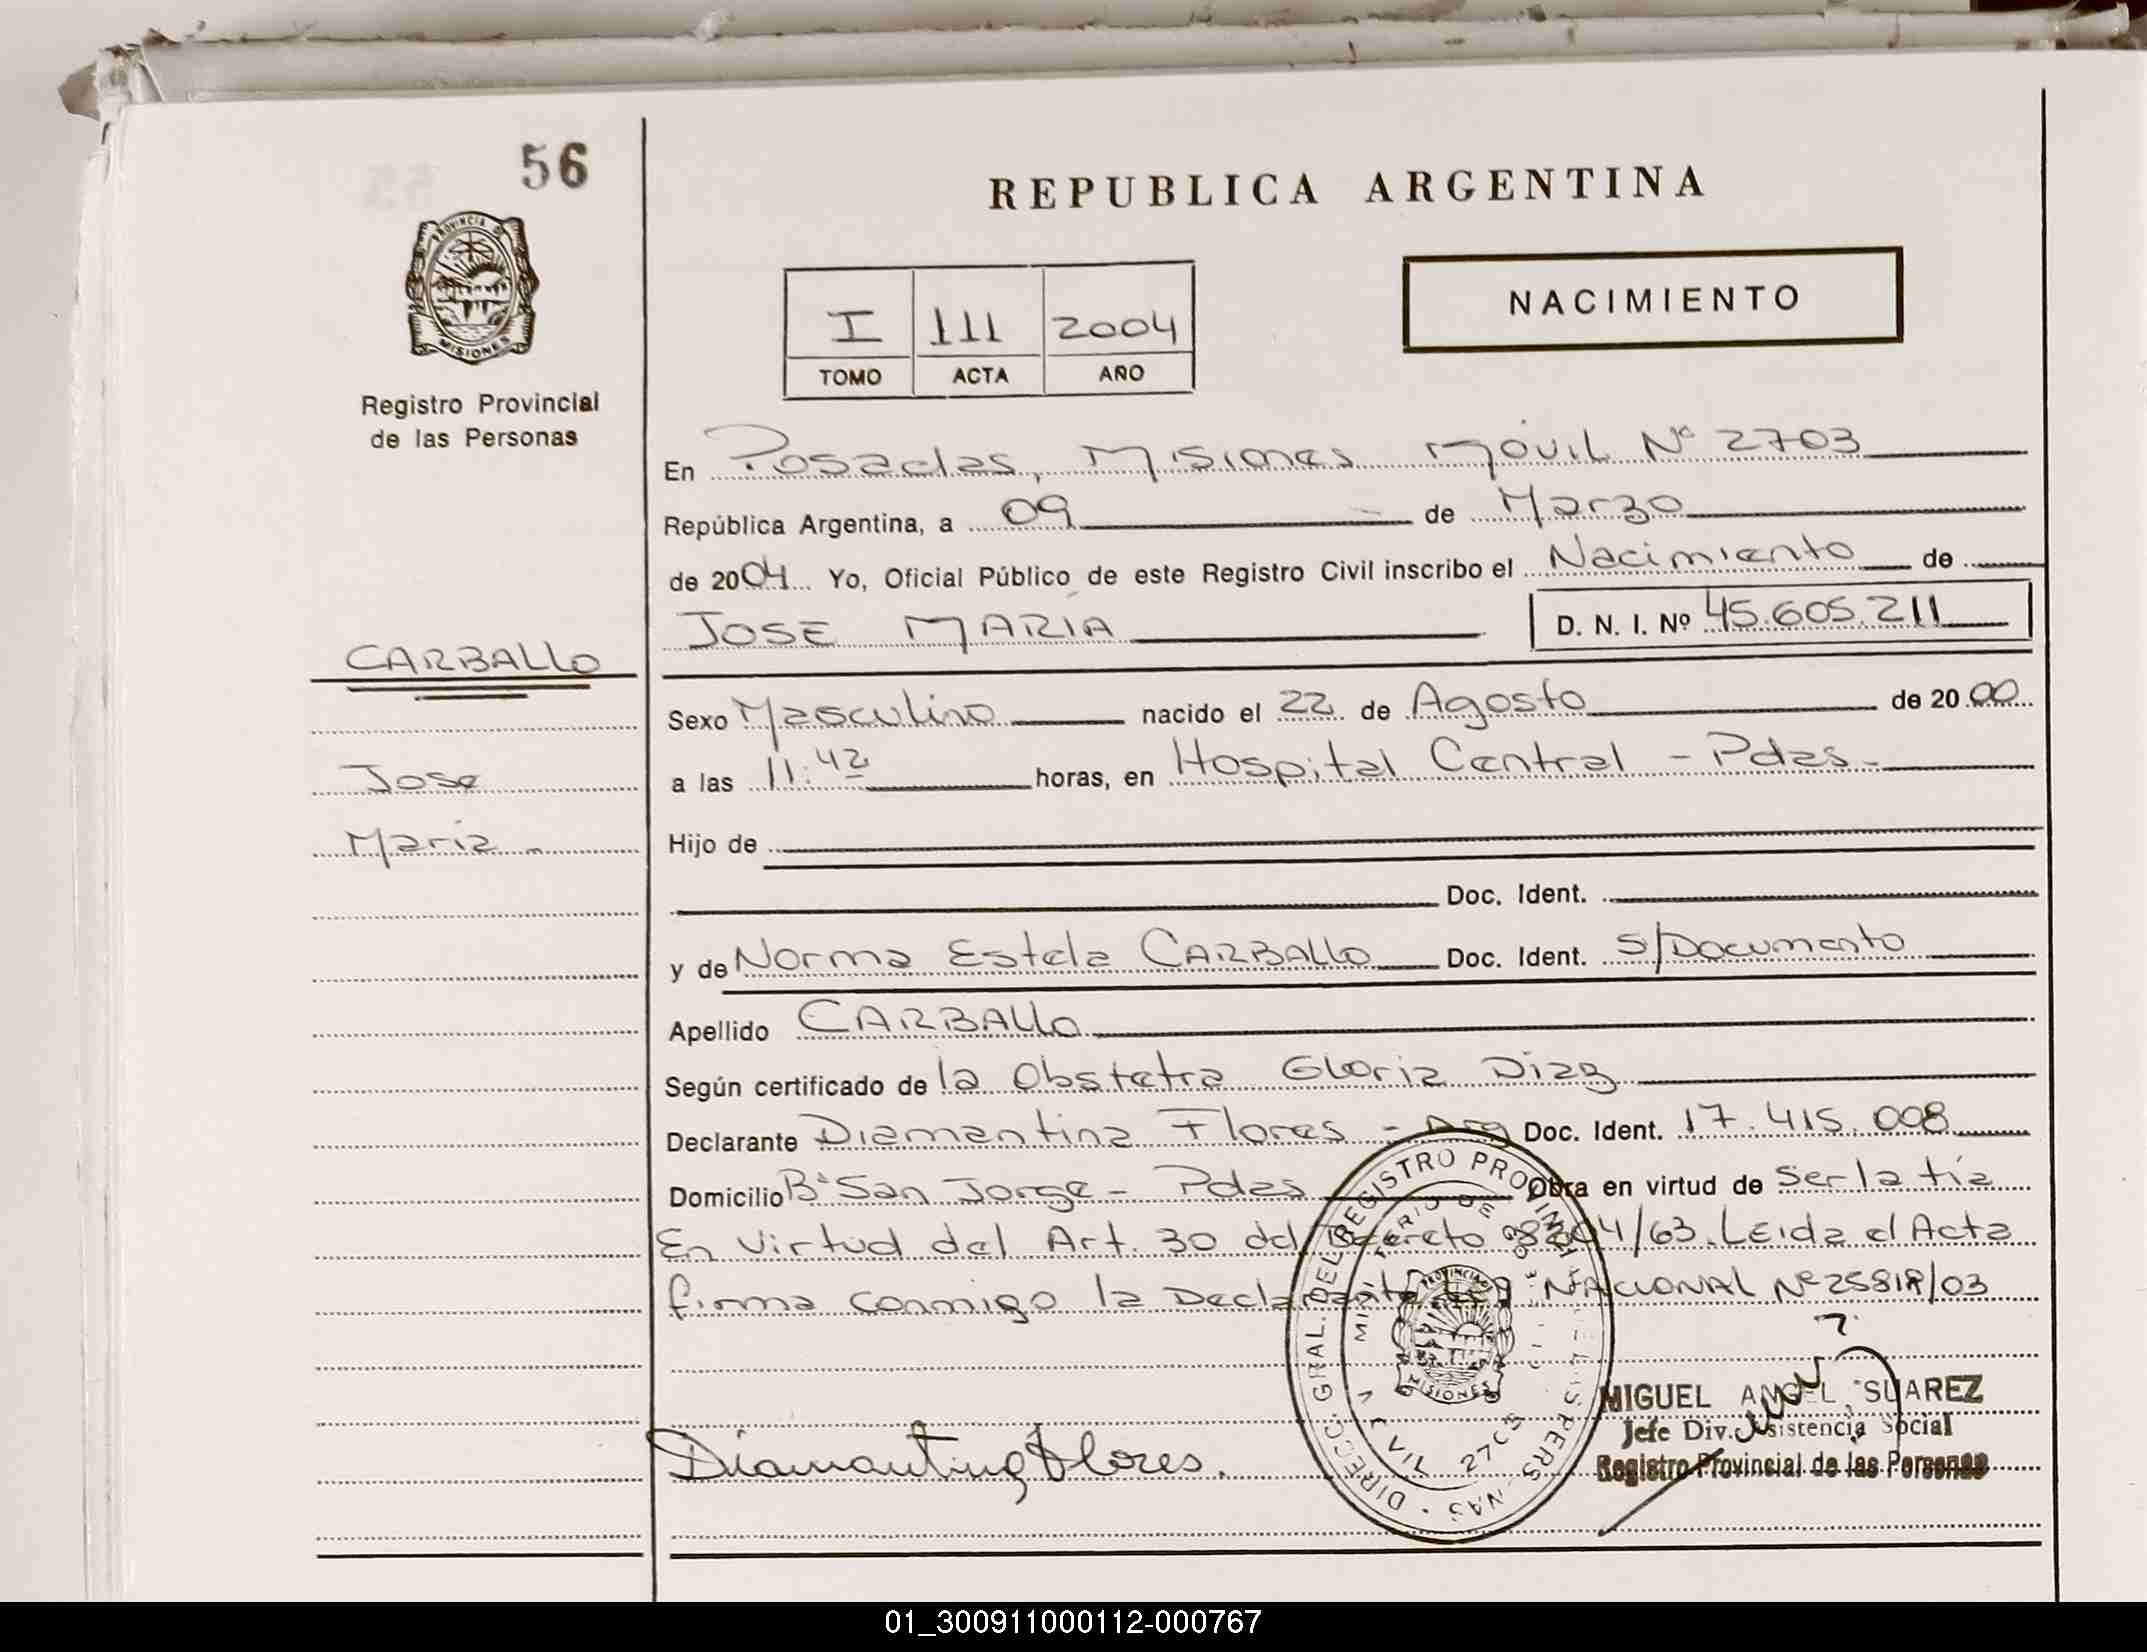 56
REPUBLICA ARGENTINA
PROVINCIA DE
MISIONES
NACIMIENTO
I 111 2004
TOMO ACTA AÑO
Registro Provincial
de las Personas
En Posadas, Misiones Móvil Nº 2703
República Argentina, a 09 de Marzo
de 2004 Yo, Oficial Público de este Registro Civil inscribo el Nacimiento de
JOSE MARÍA D. N. I. Nº 45.605.211
CARBALLO
Sexo Masculino nacido el 22 de Agosto de 2000
Jose
a las 11:42 horas, en Hospital Central - Pdas-
Maria -
Hijo de
Doc. Ident.
y de Norma Estela CARBALLO Doc. Ident. S/Documento
Apellido CARBALLO
Según certificado de la Obstetra Gloria Diaz
Declarante Diamantina Flores - Arg Doc. Ident. 17.415.008
Domicilio Bº San Jorge - Pdas Obra en virtud de Ser la tía
En Virtud del Art. 30 del Decreto 8204/63. Leida el Acta
firma conmigo la Declarante Ley NACIONAL Nº 25818/03
DIRECC. GRAL. DEL REGISTRO PROVINCIAL
MISIONES
MIGUEL ANGEL SUAREZ
Jefe Div. Asistencia Social
Registro Provincial de las Personas
Diamantina Flores.
01_300911000112-000767